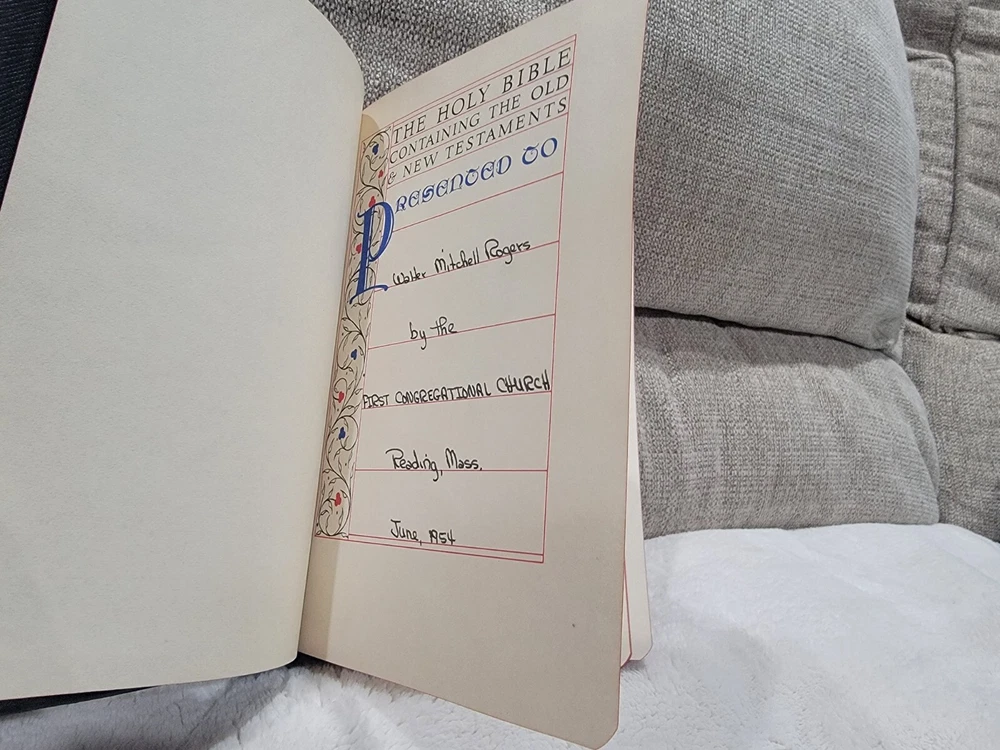 THE HOLY BIBLE
CONTAINING THE OLD
& NEW TESTAMENTS
PRESENTED TO
Walter Mitchell Rogers
by the
FIRST CONGREGATIONAL CHURCH
Reading, Mass.
June, 1954